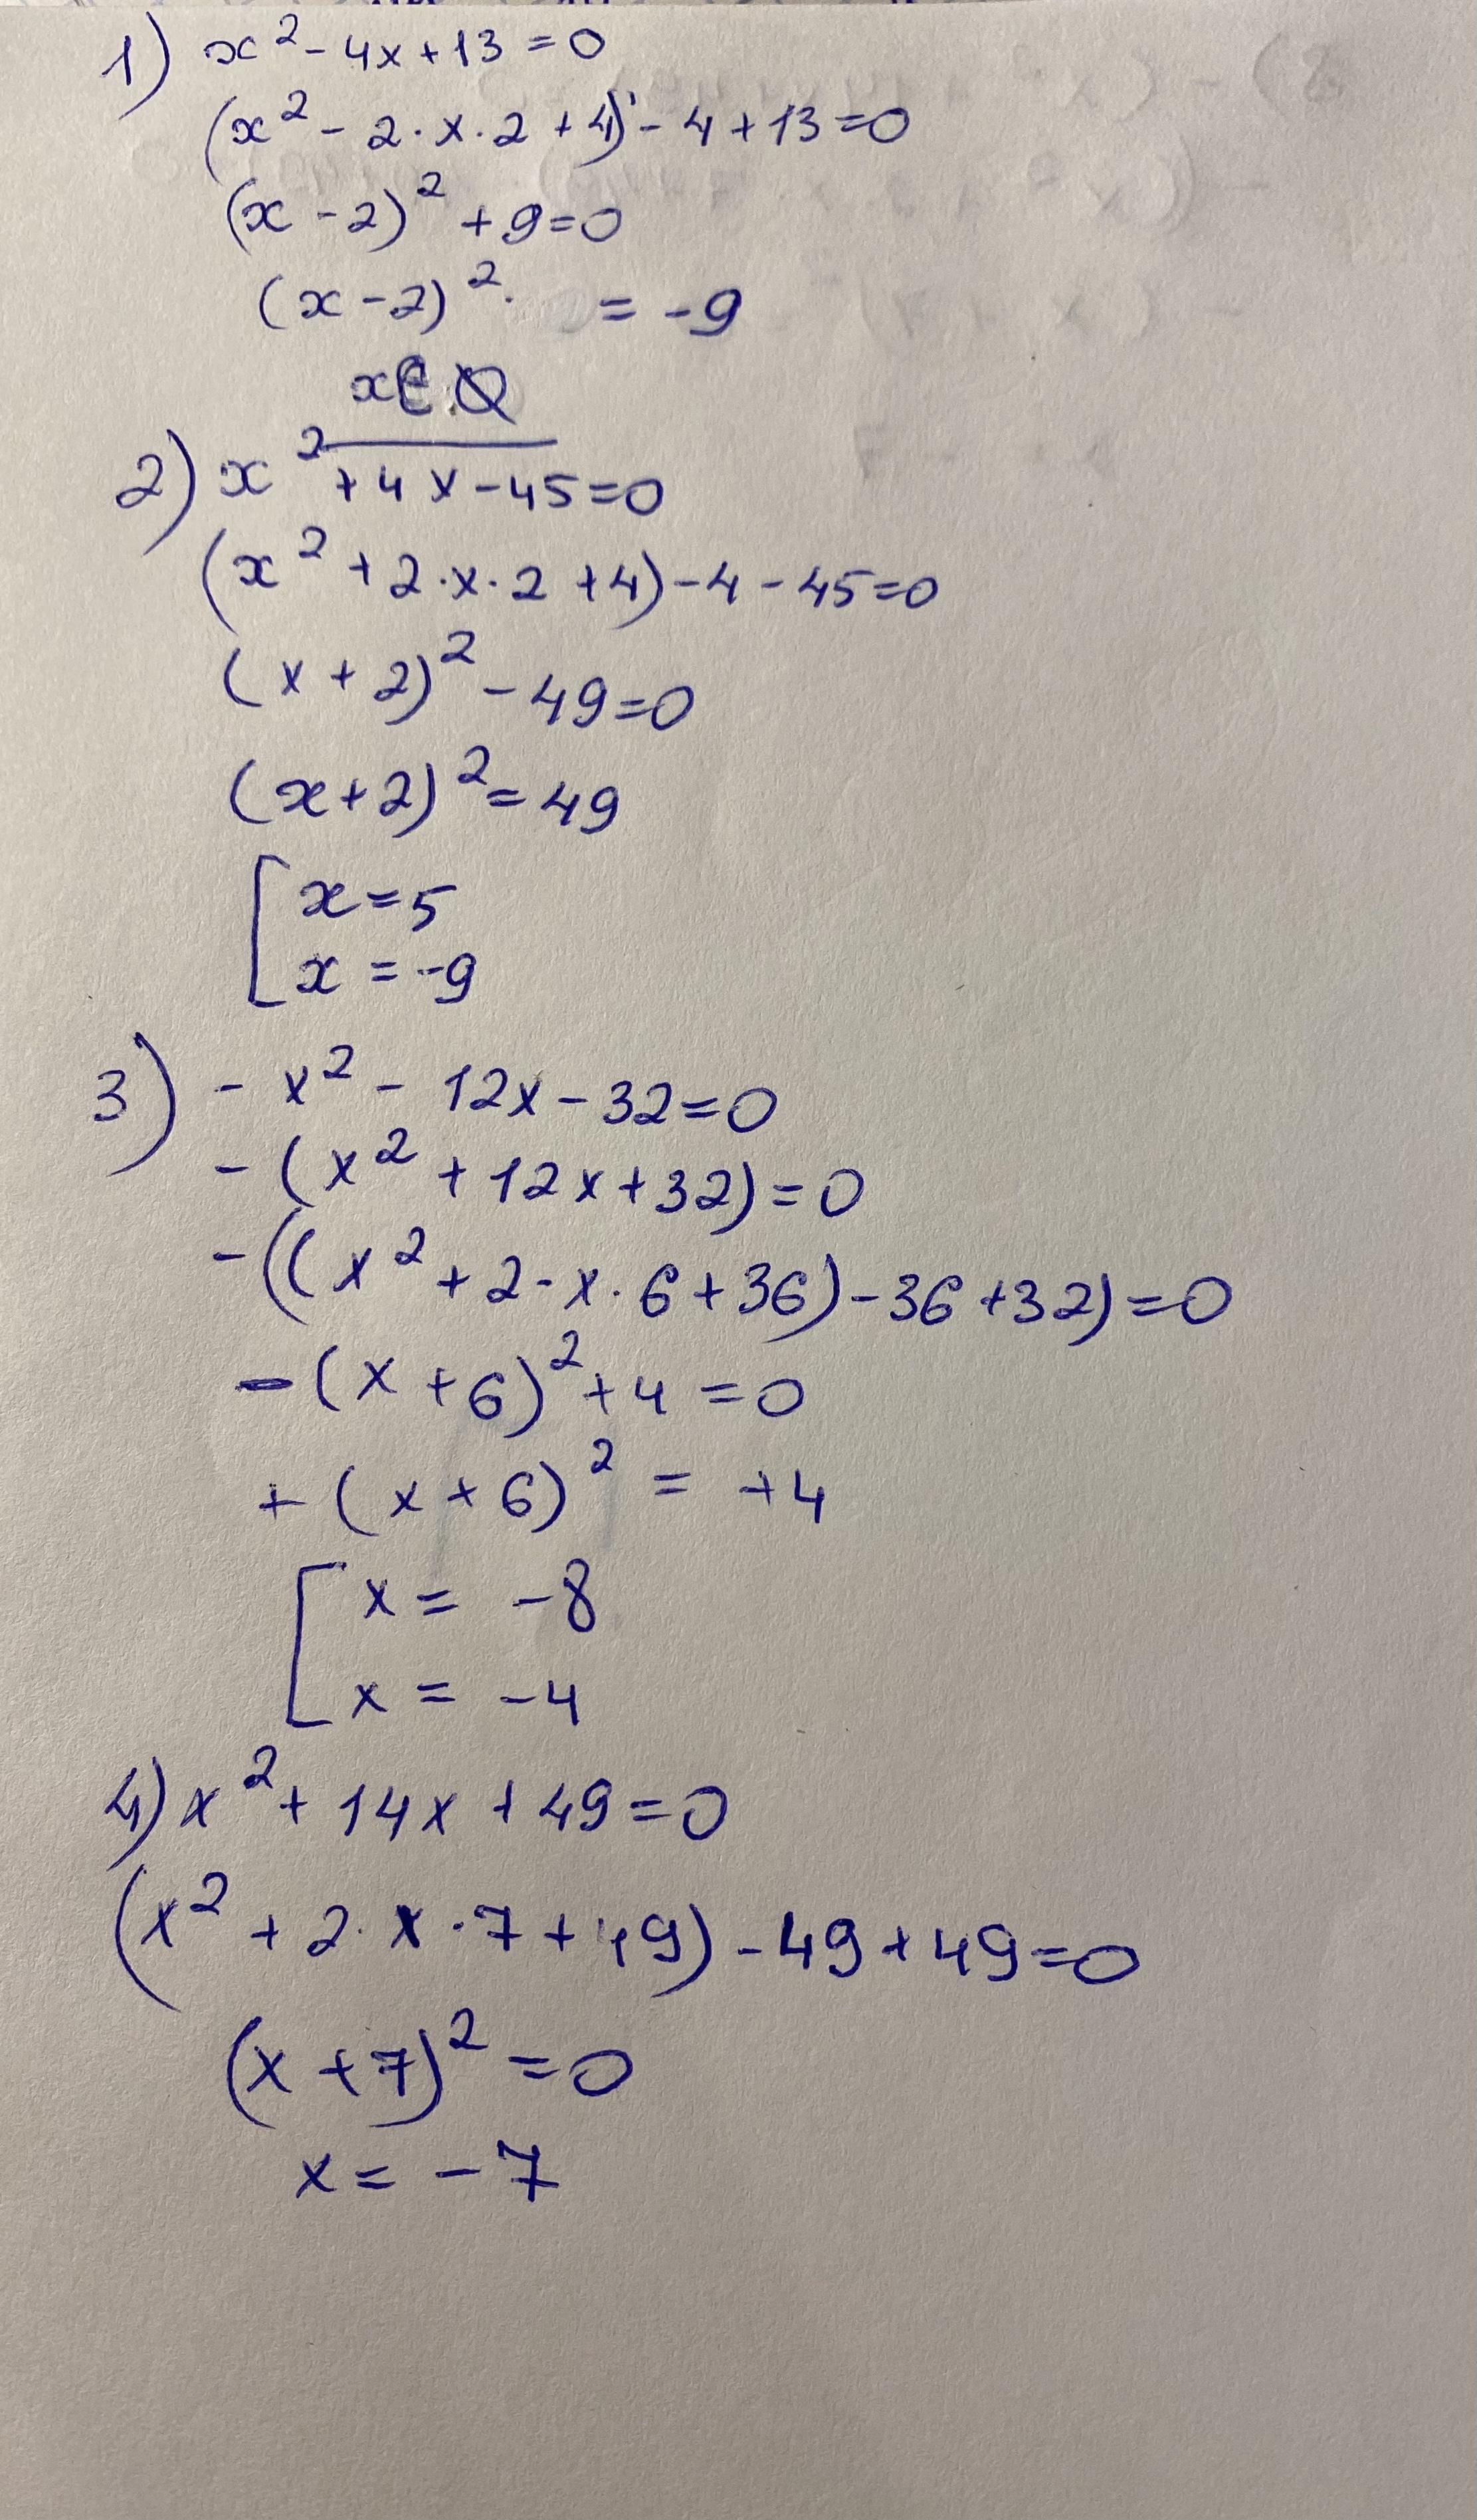 1) x² - 4x + 13 = 0
(x² - 2·x·2 + 4) - 4 + 13 = 0
(x - 2)² + 9 = 0
(x - 2)² = -9
x ∈ ∅
2) x² + 4x - 45 = 0
(x² + 2·x·2 + 4) - 4 - 45 = 0
(x + 2)² - 49 = 0
(x + 2)² = 49
[ x = 5
x = -9
3) - x² - 12x - 32 = 0
- (x² + 12x + 32) = 0
- ((x² + 2·x·6 + 36) - 36 + 32) = 0
- (x + 6)² + 4 = 0
+ (x + 6)² = +4
[ x = -8
x = -4
4) x² + 14x + 49 = 0
(x² + 2·x·7 + 49) - 49 + 49 = 0
(x + 7)² = 0
x = -7